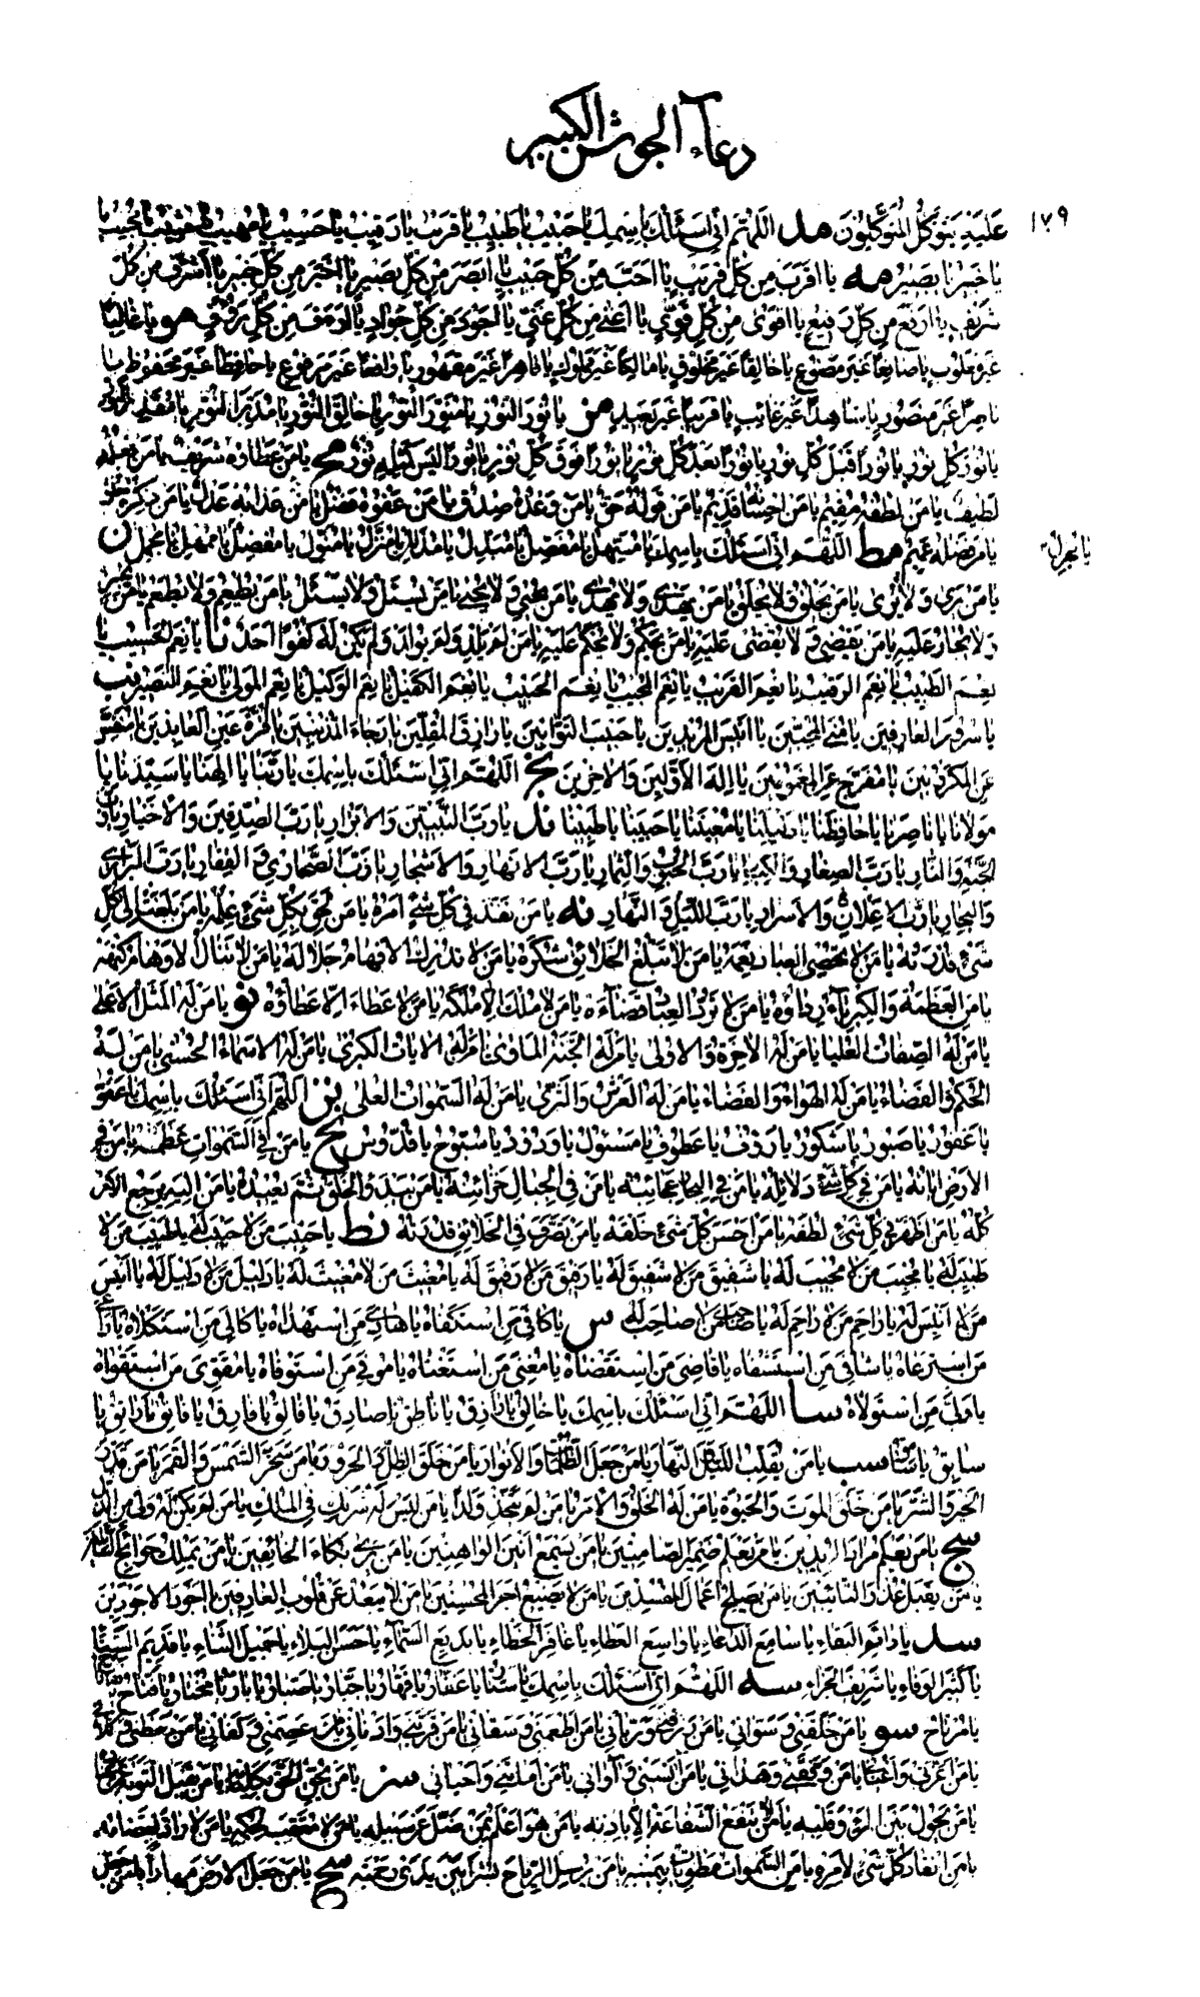 دعاء الجوشن الكبير
١٧٩
عَلَيْهِ يَتَوَكَّلُ الْمُتَوَكِّلُونَ مد اللهم اني اسئلك باسمك يا حبيب يا طبيب يا قريب يا رقيب يا حسيب يا مهيب يا مثيب يا مجيب يا
يا خبير يا بصير مه يا اقرب من كل قريب يا احب من كل حبيب يا ابصر من كل بصير يا اخبر من كل خبير يا اشرف من كل
شريف يا ارفع من كل رفيع يا اقوى من كل قوي يا اغنى من كل غني يا اجود من كل جواد يا ارءف من كل رؤف مو يا غالبا
غير مغلوب يا صانعا غير مصنوع يا خالقا غير مخلوق يا مالكا غير مملوك يا قاهرا غير مقهور يا رافعا غير مرفوع يا حافظا غير محفوظ يا
ناصرا غير منصور يا شاهدا غير غائب يا قريبا غير بعيد مز يا نور النور يا منور النور يا خالق النور يا مدبر النور يا مقدر النور
يا نور كل نور يا نورا قبل كل نور يا نورا بعد كل نور يا نورا فوق كل نور يا نورا ليس كمثله نور مح يا من عطاؤه شريف يا من فعله
لطيف يا من لطفه مقيم يا من احسانه قديم يا من قوله حق يا من وعده صدق يا من عفوه فضل يا من عذابه عدل يا من ذكره حلو
يا من فضله عميم مط اللهم اني اسئلك باسمك يا مسهل يا مفصل يا مبدل يا مذلل يا منزل يا منول يا مفضل يا ممهل يا مجمل ن
يا مجزل
يا من يرى ولا يرى يا من يخلق ولا يخلق يا من يهدي ولا يهدى يا من يحيي ولا يحيى يا من يسئل ولا يسئل يا من يطعم ولا يطعم يا من يجير
ولا يجار عليه يا من يقضي ولا يقضى عليه يا من يحكم ولا يحكم عليه يا من لم يلد ولم يولد ولم يكن له كفوا احد نا يا نعم الحسيب يا
نعم الطبيب يا نعم الرقيب يا نعم القريب يا نعم المجيب يا نعم الحبيب يا نعم الكفيل يا نعم الوكيل يا نعم المولى يا نعم النصير نب
يا سرور العارفين يا منى المحبين يا انيس المريدين يا حبيب التوابين يا رازق المقلين يا رجاء المذنبين يا قرة عين العابدين يا منفس
عن المكروبين يا مفرج عن المغمومين يا اله الاولين والاخرين نج اللهم اني اسئلك باسمك يا ربنا يا الهنا يا سيدنا يا
مولانا يا ناصرنا يا حافظنا يا دليلنا يا معيننا يا حبيبنا يا طبيبنا ند يا رب النبيين والابرار يا رب الصديقين والاخيار يا رب
الجنة والنار يا رب الصغار والكبار يا رب الحبوب والثمار يا رب الانهار والاشجار يا رب الصحاري والقفار يا رب البراري
والبحار يا رب الاعلان والاسرار يا رب الليل والنهار نه يا من نفذ في كل شيء امره يا من لحق بكل شيء علمه يا من بلغت الى كل
شيء قدرته يا من لا تحصي العباد نعمه يا من لا تبلغ الخلائق شكره يا من لا تدرك الافهام جلاله يا من لا تنال الاوهام كنهه
يا من العظمة والكبرياء رداؤه يا من لا ترد العباد قضاءه يا من لا ملك الا ملكه يا من لا عطاء الا عطاؤه نو يا من له المثل الاعلى
يا من له الصفات العليا يا من له الاخرة والاولى يا من له الجنة الماوى يا من له الايات الكبرى يا من له الاسماء الحسنى يا من له
الحكم والقضاء يا من له الهواء والفضاء يا من له العرش والثرى يا من له السموات العلى نز اللهم اني اسئلك باسمك يا عفو
يا غفور يا صبور يا شكور يا رؤف يا عطوف يا مسئول يا ودود يا سبوح يا قدوس نح يا من في السموات عظمته يا من في
الارض اياته يا من في كل شيء دلائله يا من في البحار عجائبه يا من في الجبال خزائنه يا من يبدء الخلق ثم يعيده يا من اليه يرجع الامر
كله يا من اظهر في كل شيء لطفه يا من احسن كل شيء خلقه يا من تصرف في الخلائق قدرته نط يا حبيب من لا حبيب له يا طبيب من لا
طبيب له يا مجيب من لا مجيب له يا شفيق من لا شفيق له يا رفيق من لا رفيق له يا مغيث من لا مغيث له يا دليل من لا دليل له يا انيس
من لا انيس له يا راحم من لا راحم له يا صاحب من لا صاحب له س يا كافي من استكفاه يا هادي من استهداه يا كالي من استكلاه يا راعي
من استرعاه يا شافي من استشفاه يا قاضي من استقضاه يا مغني من استغناه يا موفي من استوفاه يا مقوي من استقواه
يا ولي من استولاه سا اللهم اني اسئلك باسمك يا خالق يا رازق يا ناطق يا صادق يا فالق يا فارق يا فاتق يا راتق يا
سابق يا سامق سب يا من يقلب الليل والنهار يا من جعل الظلمات والانوار يا من خلق الظل والحرور يا من سخر الشمس والقمر يا من قدر
الخير والشر يا من خلق الموت والحيوة يا من له الخلق والامر يا من لم يتخذ ولدا يا من ليس له شريك في الملك يا من لم يكن له ولي من الذل
سج يا من يعلم مراد المريدين يا من يعلم ضمير الصامتين يا من يسمع انين الواهنين يا من يرى بكاء الخائفين يا من يملك حوائج السائلين
يا من يقبل عذر التائبين يا من لا يصلح اعمال المفسدين يا من لا يضيع اجر المحسنين يا من لا يبعد عن قلوب العارفين يا اجود الاجودين
سد يا دائم البقاء يا سامع الدعاء يا واسع العطاء يا غافر الخطاء يا بديع السماء يا حسن البلاء يا جميل الثناء يا قديم السناء
يا كثير الوفاء يا شريف الجزاء سه اللهم اني اسئلك باسمك يا ستار يا غفار يا قهار يا جبار يا صبار يا بار يا مختار يا فتاح
يا مرتاح سو يا من خلقني وسواني يا من رزقني ورباني يا من اطعمني وسقاني يا من قربني وادناني يا من عصمني وكفاني يا من حفظني وكلاني
يا من اعزني واغناني يا من وفقني وهداني يا من انسني وآواني يا من اماتني واحياني سز يا من يحق الحق بكلماته يا من يقبل التوبة عن عباده
يا من يحول بين المرء وقلبه يا من لا تنفع الشفاعة الا باذنه يا من هو اعلم بمن ضل عن سبيله يا من لا معقب لحكمه يا من لا راد لقضائه
يا من انقاد كل شيء لامره يا من السموات مطويات بيمينه يا من يرسل الرياح بشرا بين يدي رحمته سح يا من جعل الارض مهادا يا من جعل